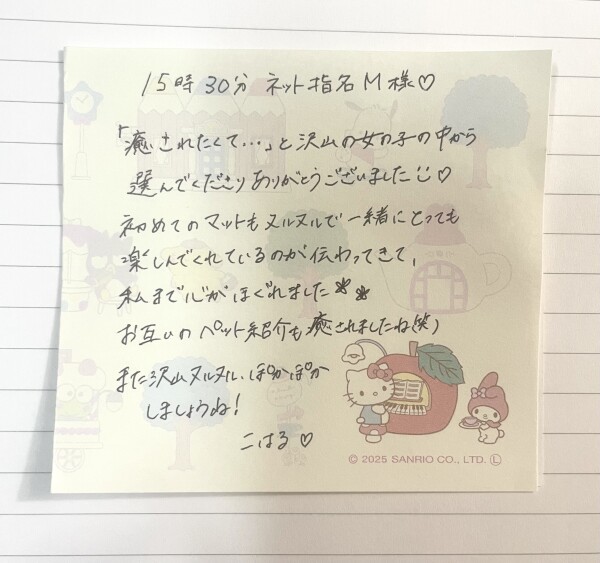 15時30分 ネット指名M様♡
「癒されたくて…」と沢山の女の子の中から
選んでくださりありがとうございました♡
初めてのマットもヌルヌルで一緒にとっても
楽しんでくれているのが伝わってきて、
私まで心がほぐれました
お互いのペット紹介も癒されましたね(笑)
また沢山ヌルヌル、ぽかぽか
しましょうね!
こはる♡
© 2025 SANRIO CO., LTD. Ⓛ